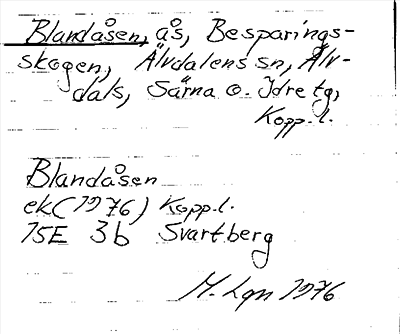 Blandåsen, ås, Besparings-
skogen, Älvdalens sn, Älv-
dals, Särna o. Idre tg,
Kopp. l.
Blandåsen
ek (1976) Kopp. l.
15E 3b Svartberg
M. Lgn 1976